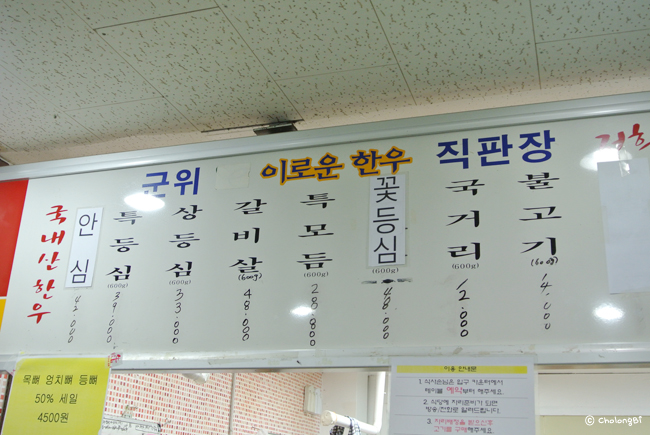 군위 이로운 한우 직판장
국내산한우
안심 42.000
특등심 (600g) 39.000
상등심 (600g) 33.000
갈비살 (600g) 48.000
특모듬 (600g) 28.800
꽃등심 (600g) 48.000
국거리 (600g) 12.000
불고기 (600g) 14.000
목뼈 엉치뼈 등뼈
50% 세일
4500원
이용 안내문
1. 식사손님은 입구 카운터에서
테이블 예약부터 해주세요.
2. 식당에 자리준비가 되면
방송/전화로 알려드립니다.
3.
고기를 구매해주세요.
© CholongBi